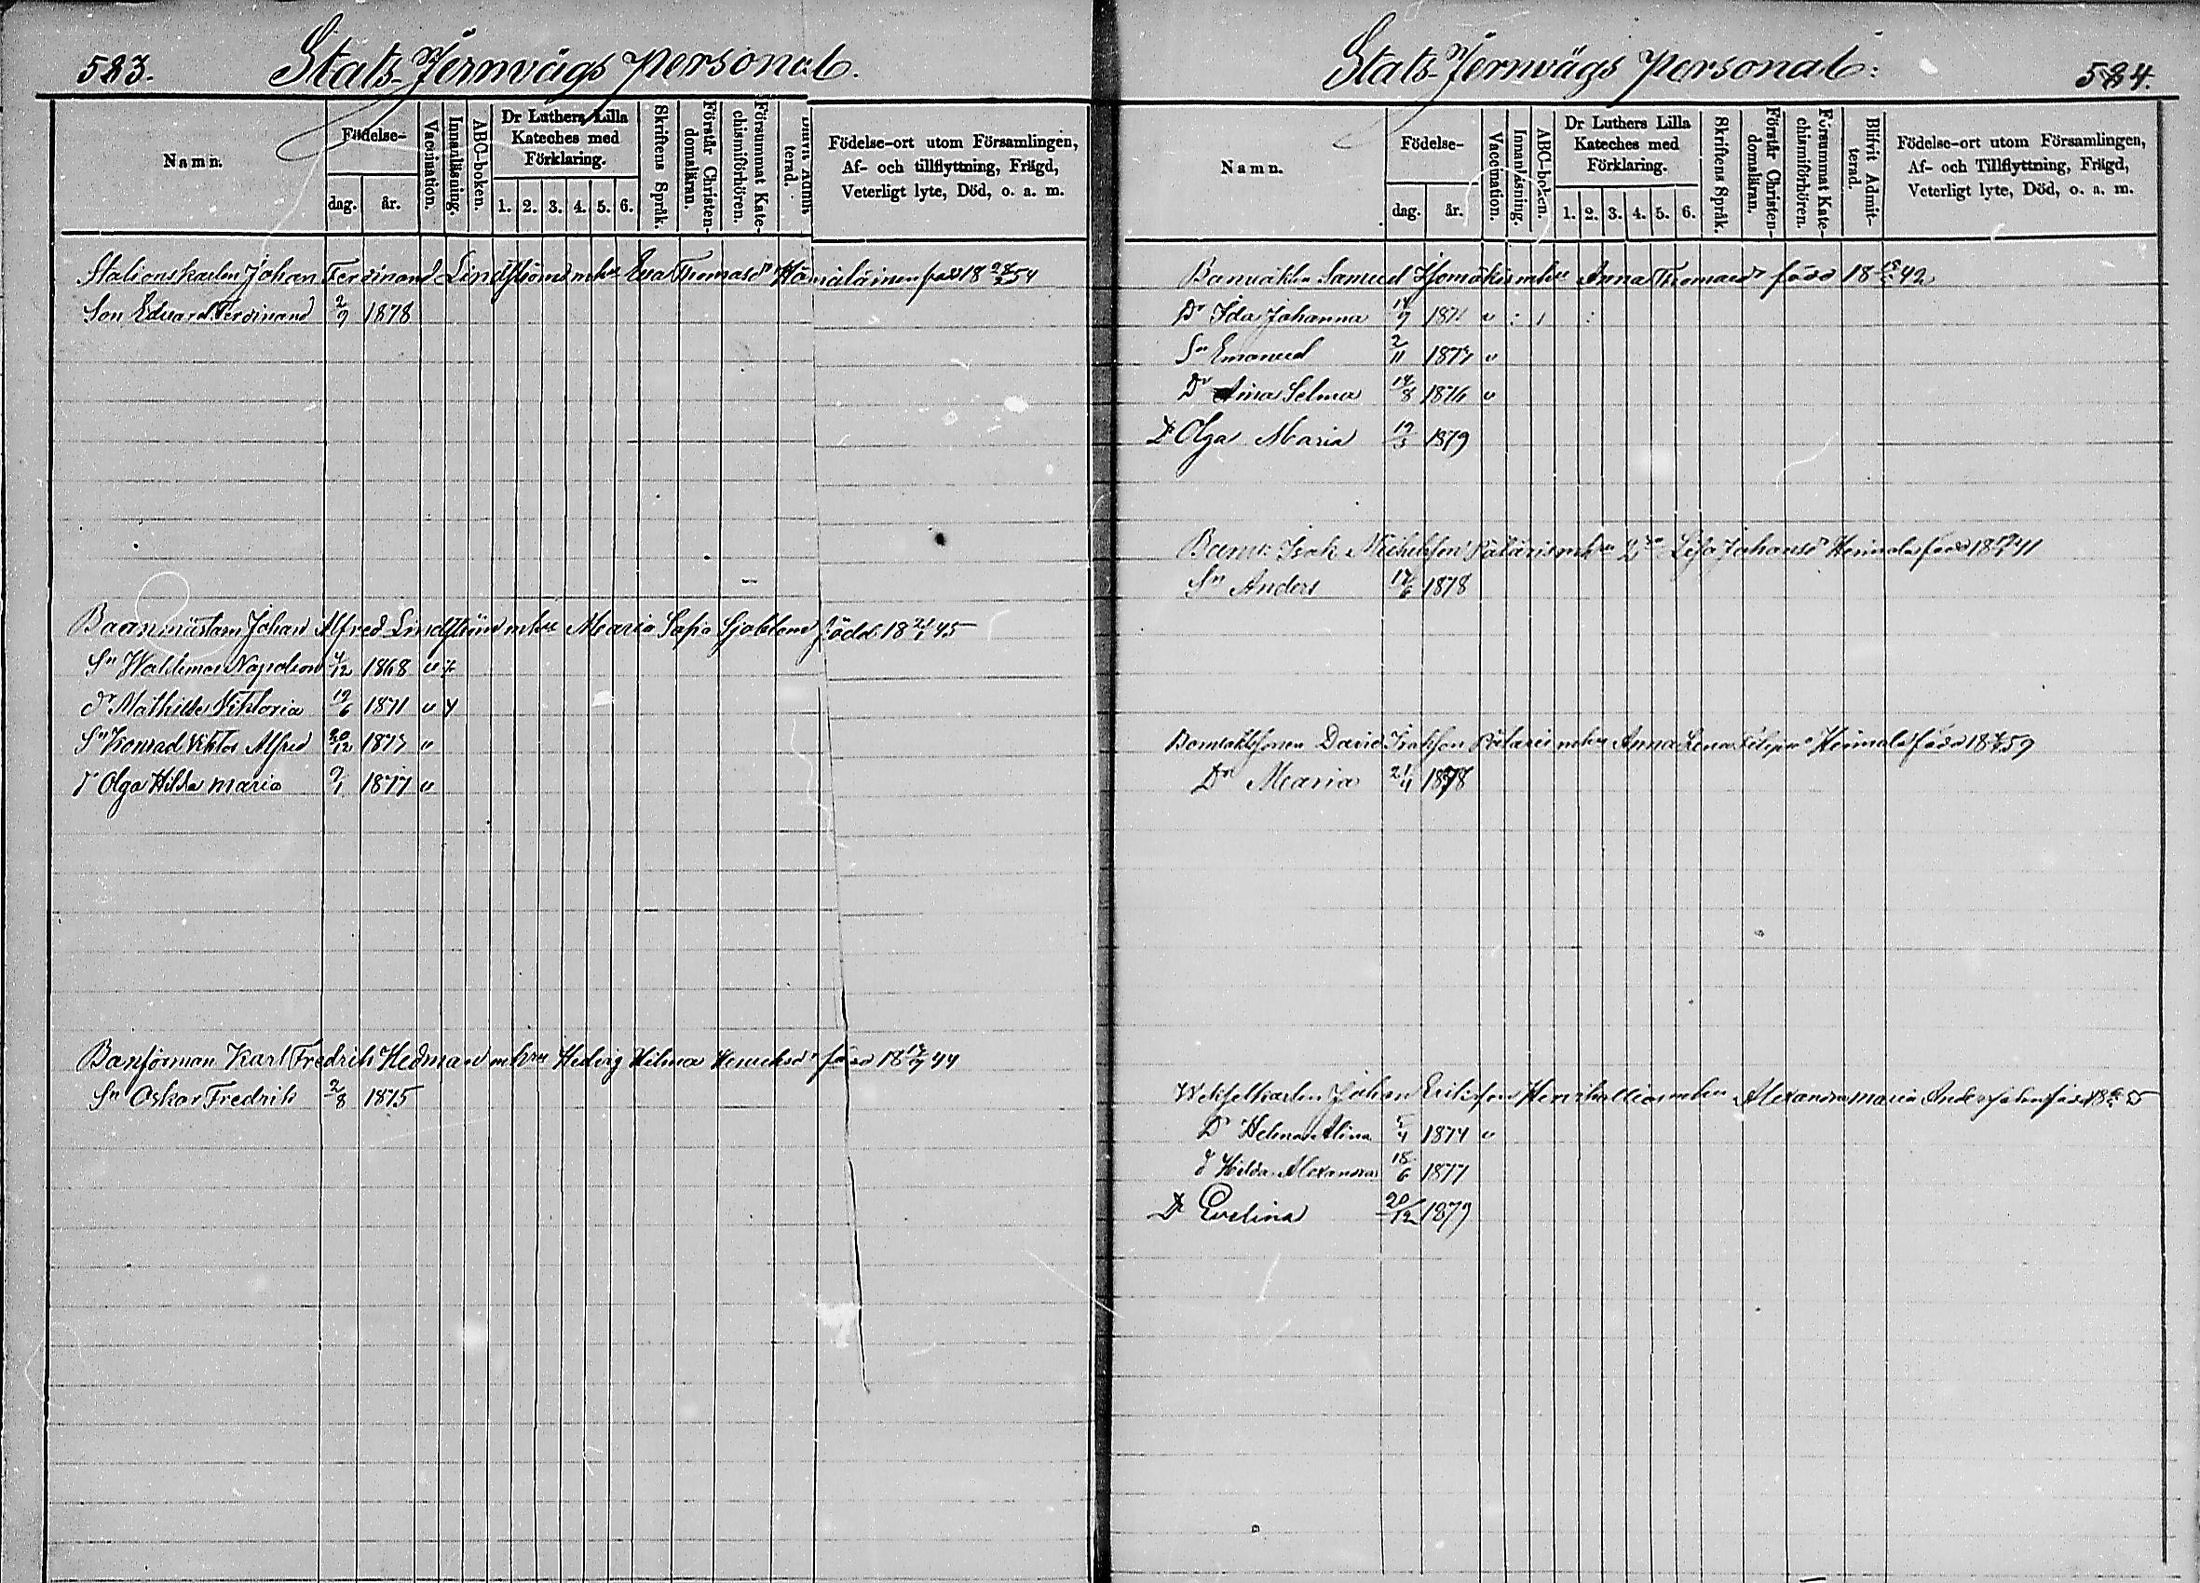 583.
Stats-Jernvägs personal.
Namn.
Födelse-
dag.
år.
Vaccination.
Innanläsning.
ABC-boken.
Dr Luthers Lilla
Kateches med
Förklaring.
1. 2. 3. 4. 5. 6.
Skriftens Språk.
Förstår Christen-
domsläran.
Försummat Kate-
chismiförhören.
Blifvit Admit-
terad.
Födelse-ort utom Församlingen,
Af- och tillflyttning, Frägd,
Veterligt lyte, Död, o. a. m.
Stationskarlen Johan Ferdinand Lindström mhu Eva Thomasdr född 18 54
Son Edvard Ferdinand 2/9 1878
Johan Alfred Lindström mhu Maria Sofia Sjöblom född 18 45
Sn Waldemar Napoleon 1868 v
dr Mathilda Viktoria 19/6 1871 v
Sn Konrad Viktor Alfred 20/12 1873 v
dr Olga Hilda Maria 9/1 1877 v
Banförman Karl Fredrik Hedman mhru Hedvig Hilma Henriksdr född 18 44
Sn Oskar Fredrik 2/8 1875
Stats-Jernvägs personal:
584.
Namn.
Födelse-
dag.
år.
Vaccination.
Innanläsning.
ABC-boken.
Dr Luthers Lilla
Kateches med
Förklaring.
1. 2. 3. 4. 5. 6.
Skriftens Språk.
Förstår Christen-
domsläran.
Försummat Kate-
chismiförhören.
Blifvit Admit-
terad.
Födelse-ort utom Församlingen,
Af- och Tillflyttning, Frägd,
Veterligt lyte, Död, o. a. m.
Banvakten Samuel mhu Anna Thomasdr född 18 42
Dr Ida Johanna 14/9 1871 v : 1 :
Sn Emanuel 2/11 1873 v
Dr Aina Selma 14/8 1876 v
Dr Olga Maria 19/3 1879
Banv: Isak Michelsson mhu Lisa Johansdr född 18 41
Sn Anders 17/6 1878
David Isaksson mhu Anna Lena född 18 59
Dr Maria 21/4 1878
Wexelkarlen Johan Eriksson mhu Alexandra Maria född 18
Dr Helma Alina 5/4 1874 v
d Hilda Alexandra 18/6 1877
Dr Evelina 20/12 1879